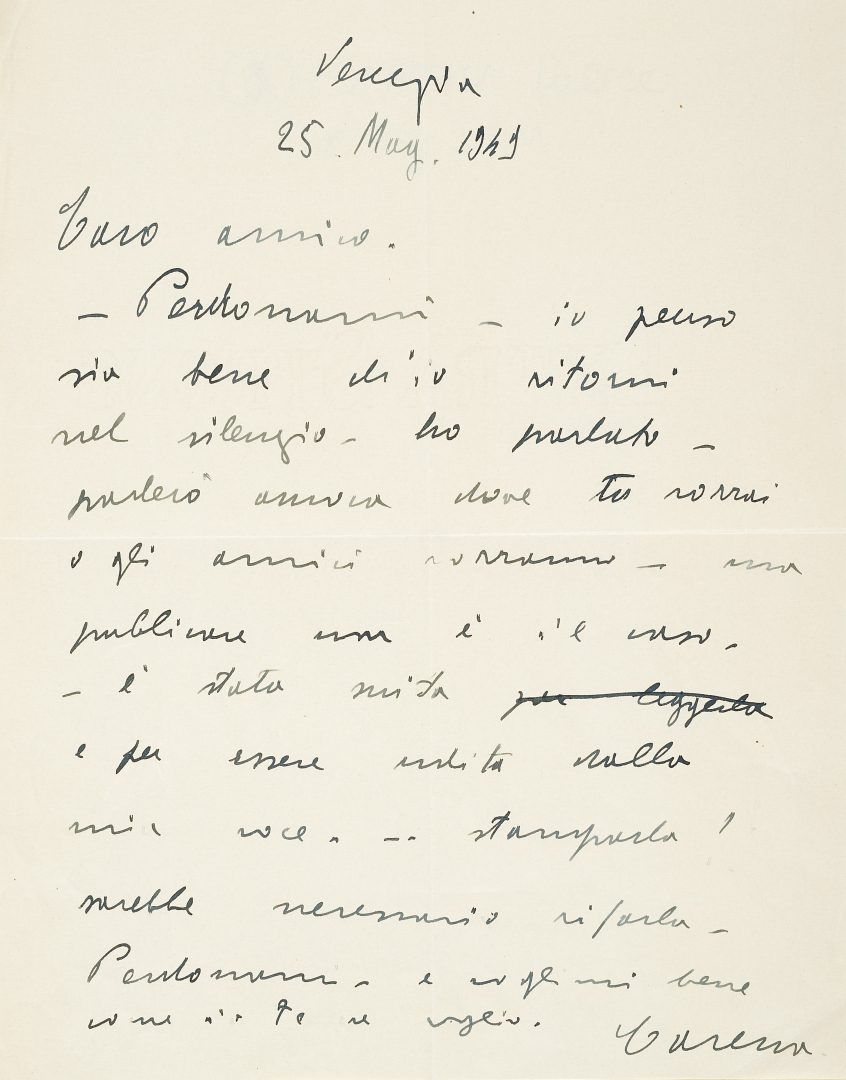 Venezia
25. Mag. 1949
Caro amico.
– Perdonami – io penso
sia bene ch'io ritorni
nel silenzio – ho parlato –
parlerò ancora dove tu vorrai
o gli amici vorranno – ma
publicare non è il caso.
– è stata scritta per leggerla
e per essere udita dalla
mia voce. – stamparla!
sarebbe necessario rifarla –
Perdonami – e vogliami bene
come io te ne voglio.
Carena